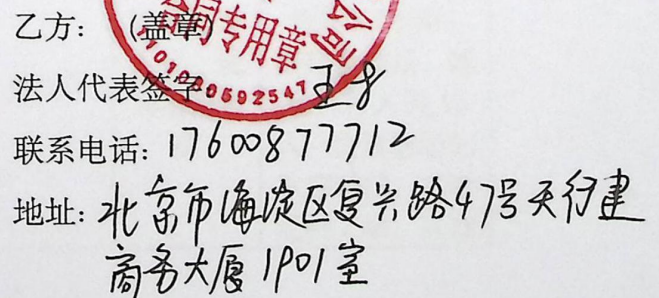 乙方：（盖章）
公司
合同专用章
1101080592547
法人代表签字
联系电话：17600877712
地址：北京市海淀区复兴路47号天行建
商务大厦1901室